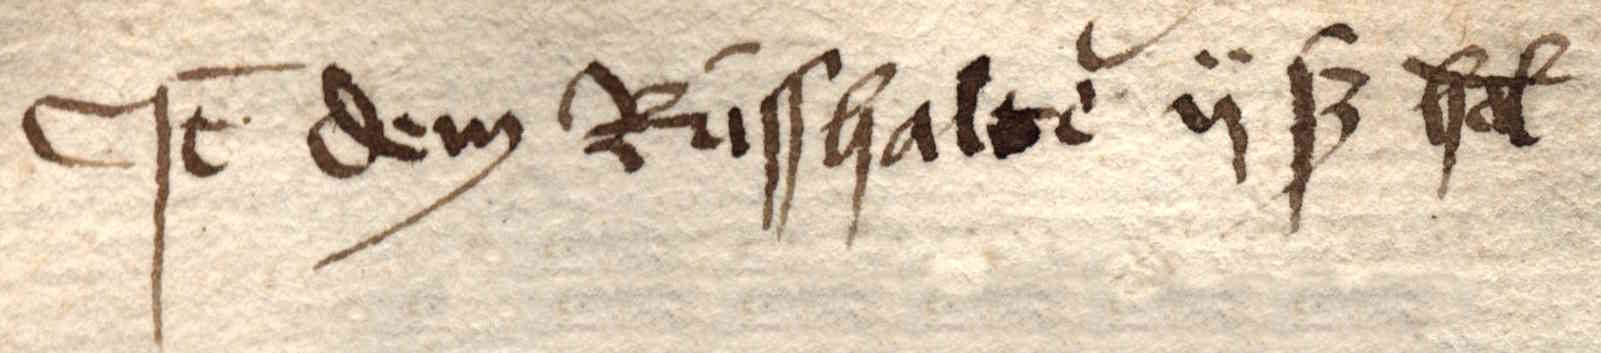 It dem Rússhalter ij ß hl